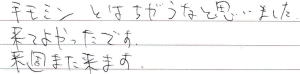 手モミン とはちがうなと思いました.
来てよかったです.
来週また来ます.